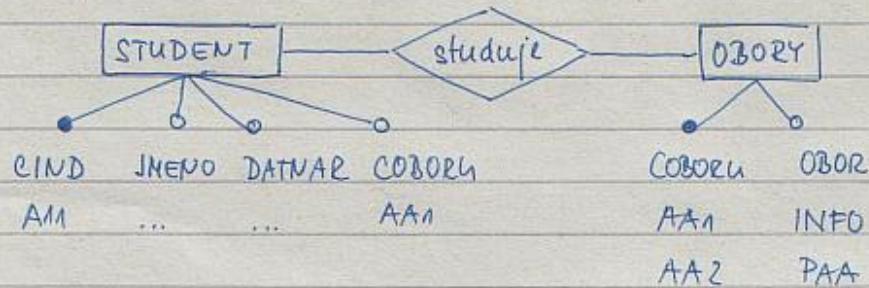 STUDENT studuje OBORY
CIND JMENO DATNAR COBORU COBORU OBOR
A11 ... ... AA1 AA1 INFO
AA2 PAA